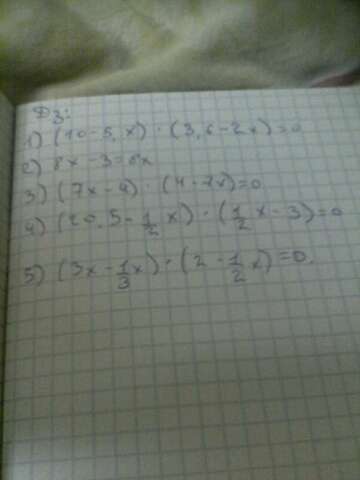 ДЗ:
1) (10 - 5, x) · (3,6 - 2x) = 0
2) 8x - 3 =
3) (7x - 4) · (4 - 7x) = 0
4) (20,5 - 1/2 x) · (1/2 x - 3) = 0
5) (3x - 1/3 x) · (2 - 1/2 x) = 0.